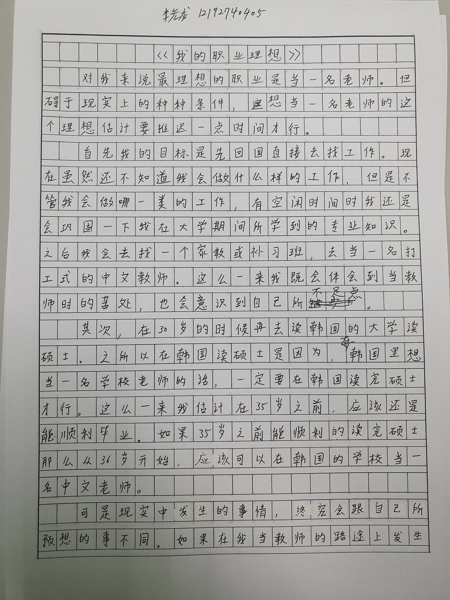 李光龙 12192740405
《我的职业理想》
对我来说最理想的职业是当一名老师。但
碍于现实上的种种条件，想当一名老师的这
个理想估计要推迟一点时间才行。
首先我的目标是先回国直接去找工作。现
在虽然还不知道我会做什么样的工作，但是不
管我会做哪一类的工作，有空闲时间时我还是
会巩固一下我在大学期间所学到的专业知识。
之后我会去找一个家教或补习班，去当一名打
工式的中文教师。这么一来我既会体会到当教
师时的苦处，也会意识到自己所不足点。
其次，在30岁的时候再去读韩国的大学读
硕士。之所以在韩国读硕士是因为，在韩国里想
当一名学校老师的话，一定要在韩国读完硕士
才行。这么一来我估计在35岁之前，应该还是
能顺利毕业。如果35岁之前能顺利的读完硕士
那么从36岁开始，应该可以在韩国的学校当一
名中文老师。
可是现实中发生的事情，终究会跟自己所
预想的事不同。如果在我当教师的路途上发生